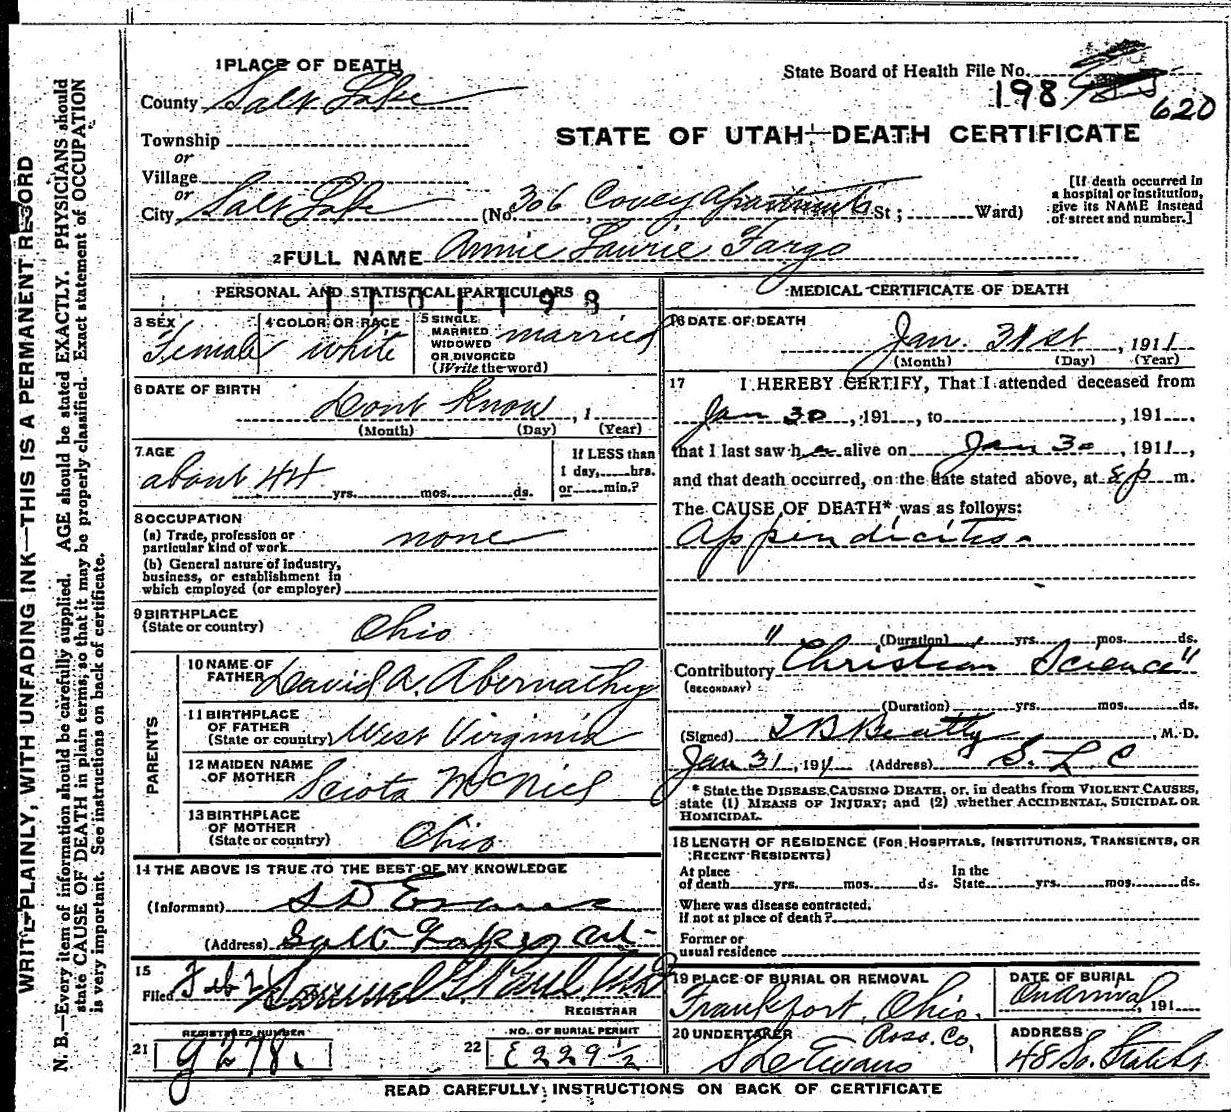 1 PLACE OF DEATH
State Board of Health File No.
198
620
County Salt Lake
STATE OF UTAH—DEATH CERTIFICATE
Township
or
Village
or
City Salt Lake (No. 306 Covey Apartments St; Ward)
[If death occurred in a hospital or institution, give its NAME instead of street and number.]
2 FULL NAME Annie Laurie Fargo
PERSONAL AND STATISTICAL PARTICULARS
1101198
3 SEX Female
4 COLOR OR RACE white
5 SINGLE MARRIED WIDOWED OR DIVORCED (Write the word) married
6 DATE OF BIRTH Dont Know, 1
(Month) (Day) (Year)
7 AGE about 44 yrs. mos. ds.
If LESS than 1 day, hrs. or min.?
8 OCCUPATION
(a) Trade, profession or particular kind of work none
(b) General nature of industry, business, or establishment in which employed (or employer)
9 BIRTHPLACE (State or country) Ohio
PARENTS
10 NAME OF FATHER David A. Abernathy
11 BIRTHPLACE OF FATHER (State or country) West Virginia
12 MAIDEN NAME OF MOTHER Sciota McNiel
13 BIRTHPLACE OF MOTHER (State or country) Ohio
14 THE ABOVE IS TRUE TO THE BEST OF MY KNOWLEDGE
(Informant) S D Evans
(Address) Salt Lake
15 Filed Feb 2 Samuel G. Paul
REGISTRAR
REGISTERED NUMBER
21 g 278
NO. OF BURIAL PERMIT
22 E 229 1/2
MEDICAL CERTIFICATE OF DEATH
16 DATE OF DEATH Jan. 31st, 1911
(Month) (Day) (Year)
17 I HEREBY CERTIFY, That I attended deceased from
Jan 30, 191 , to , 191 ,
that I last saw her alive on Jan 30, 1911,
and that death occurred, on the date stated above, at m.
The CAUSE OF DEATH* was as follows:
Appendicitis
(Duration) yrs. mos. ds.
Contributory (SECONDARY) "Christian Science"
(Duration) yrs. mos. ds.
(Signed) T B Beatty, M. D.
Jan 31, 1911 (Address) S. L C
* State the DISEASE CAUSING DEATH, or, in deaths from VIOLENT CAUSES, state (1) MEANS OF INJURY; and (2) whether ACCIDENTAL, SUICIDAL OR HOMICIDAL.
18 LENGTH OF RESIDENCE (FOR HOSPITALS, INSTITUTIONS, TRANSIENTS, OR RECENT RESIDENTS)
At place of death yrs. mos. ds. In the State yrs. mos. ds.
Where was disease contracted, If not at place of death?
Former or usual residence
19 PLACE OF BURIAL OR REMOVAL Frankfort, Ohio. Ross. Co,
DATE OF BURIAL On arrival, 191
20 UNDERTAKER S D Evans
ADDRESS 48 So. State St
READ CAREFULLY INSTRUCTIONS ON BACK OF CERTIFICATE
WRITE PLAINLY, WITH UNFADING INK—THIS IS A PERMANENT RECORD
N. B.—Every item of information should be carefully supplied. AGE should be stated EXACTLY. PHYSICIANS should
state CAUSE OF DEATH in plain terms, so that it may be properly classified. Exact statement of OCCUPATION
is very important. See instructions on back of certificate.